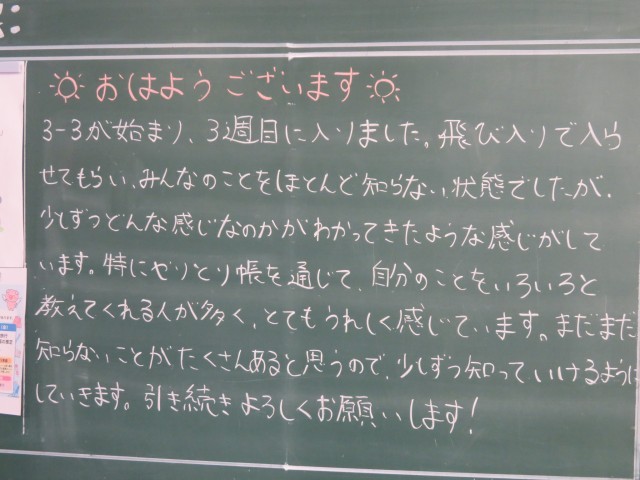 ☼おはようございます☼
3-3が始まり、3週目に入りました。飛び入りで入ら
せてもらい、みんなのことをほとんど知らない状態でしたが、
少しずつどんな感じなのかがわかってきたような感じがして
います。特にやりとり帳を通じて、自分のことをいろいろと
教えてくれる人が多く、とてもうれしく感じています。まだまだ
知らないことがたくさんあると思うので、少しずつ知っていけるように
していきます。引き続きよろしくお願いします!